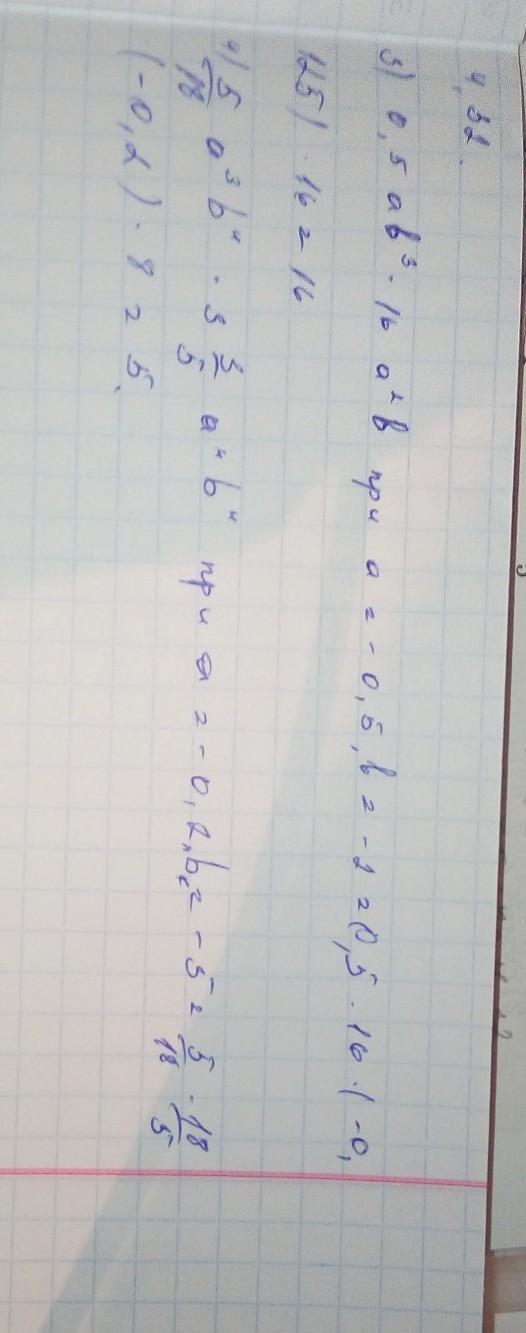 4.32.
3) 0,5 ab³ · 16 a²b при a = -0,5, b = -2 = 0,5 · 16 · (-0,
125) · 16 = 16
4) 5/18 a³b⁴ · 3 3/5 a⁴b⁴ при a = -0,2, b = -5 = 5/18 · 18/5
(-0,2) · 8 = 5.